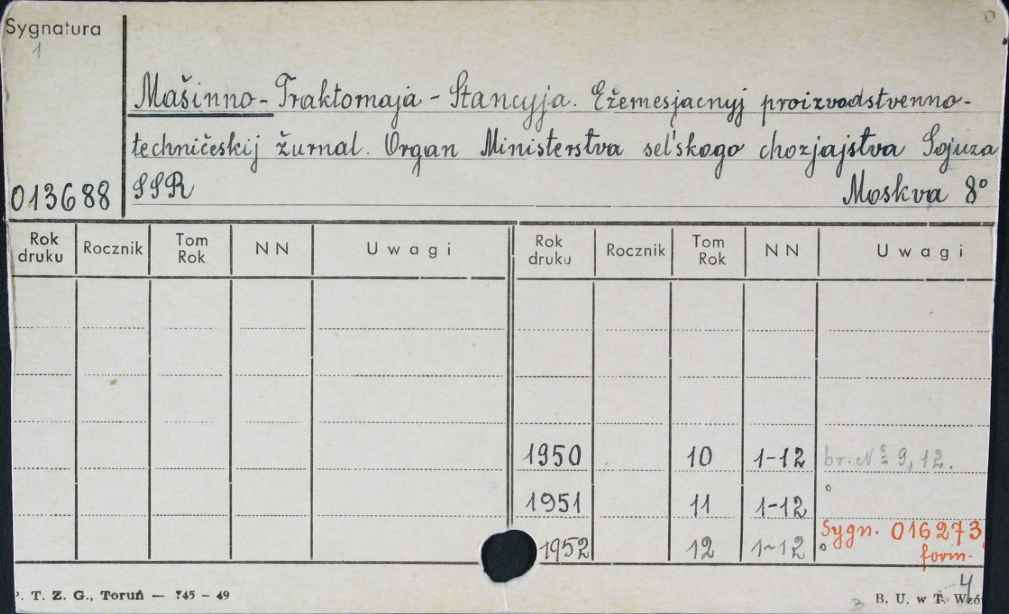 Sygnatura
1
Mašinno-Traktornaja - Stancyja. Ežemesjacnyj proizvodstvenno-
techničeskij žurnal. Organ Ministerstva sel'skogo chozjajstva Sojuza
013688 SSR Moskva 8°
Rok druku Rocznik Tom Rok NN Uwagi Rok druku Rocznik Tom Rok NN Uwagi
1950 10 1-12 br. № 9, 12.
1951 11 1-12 °
Sygn. 016273
1952 12 1-12 ° form-
P. T. Z. G., Toruń — 745 - 49
4
B. U. w T.